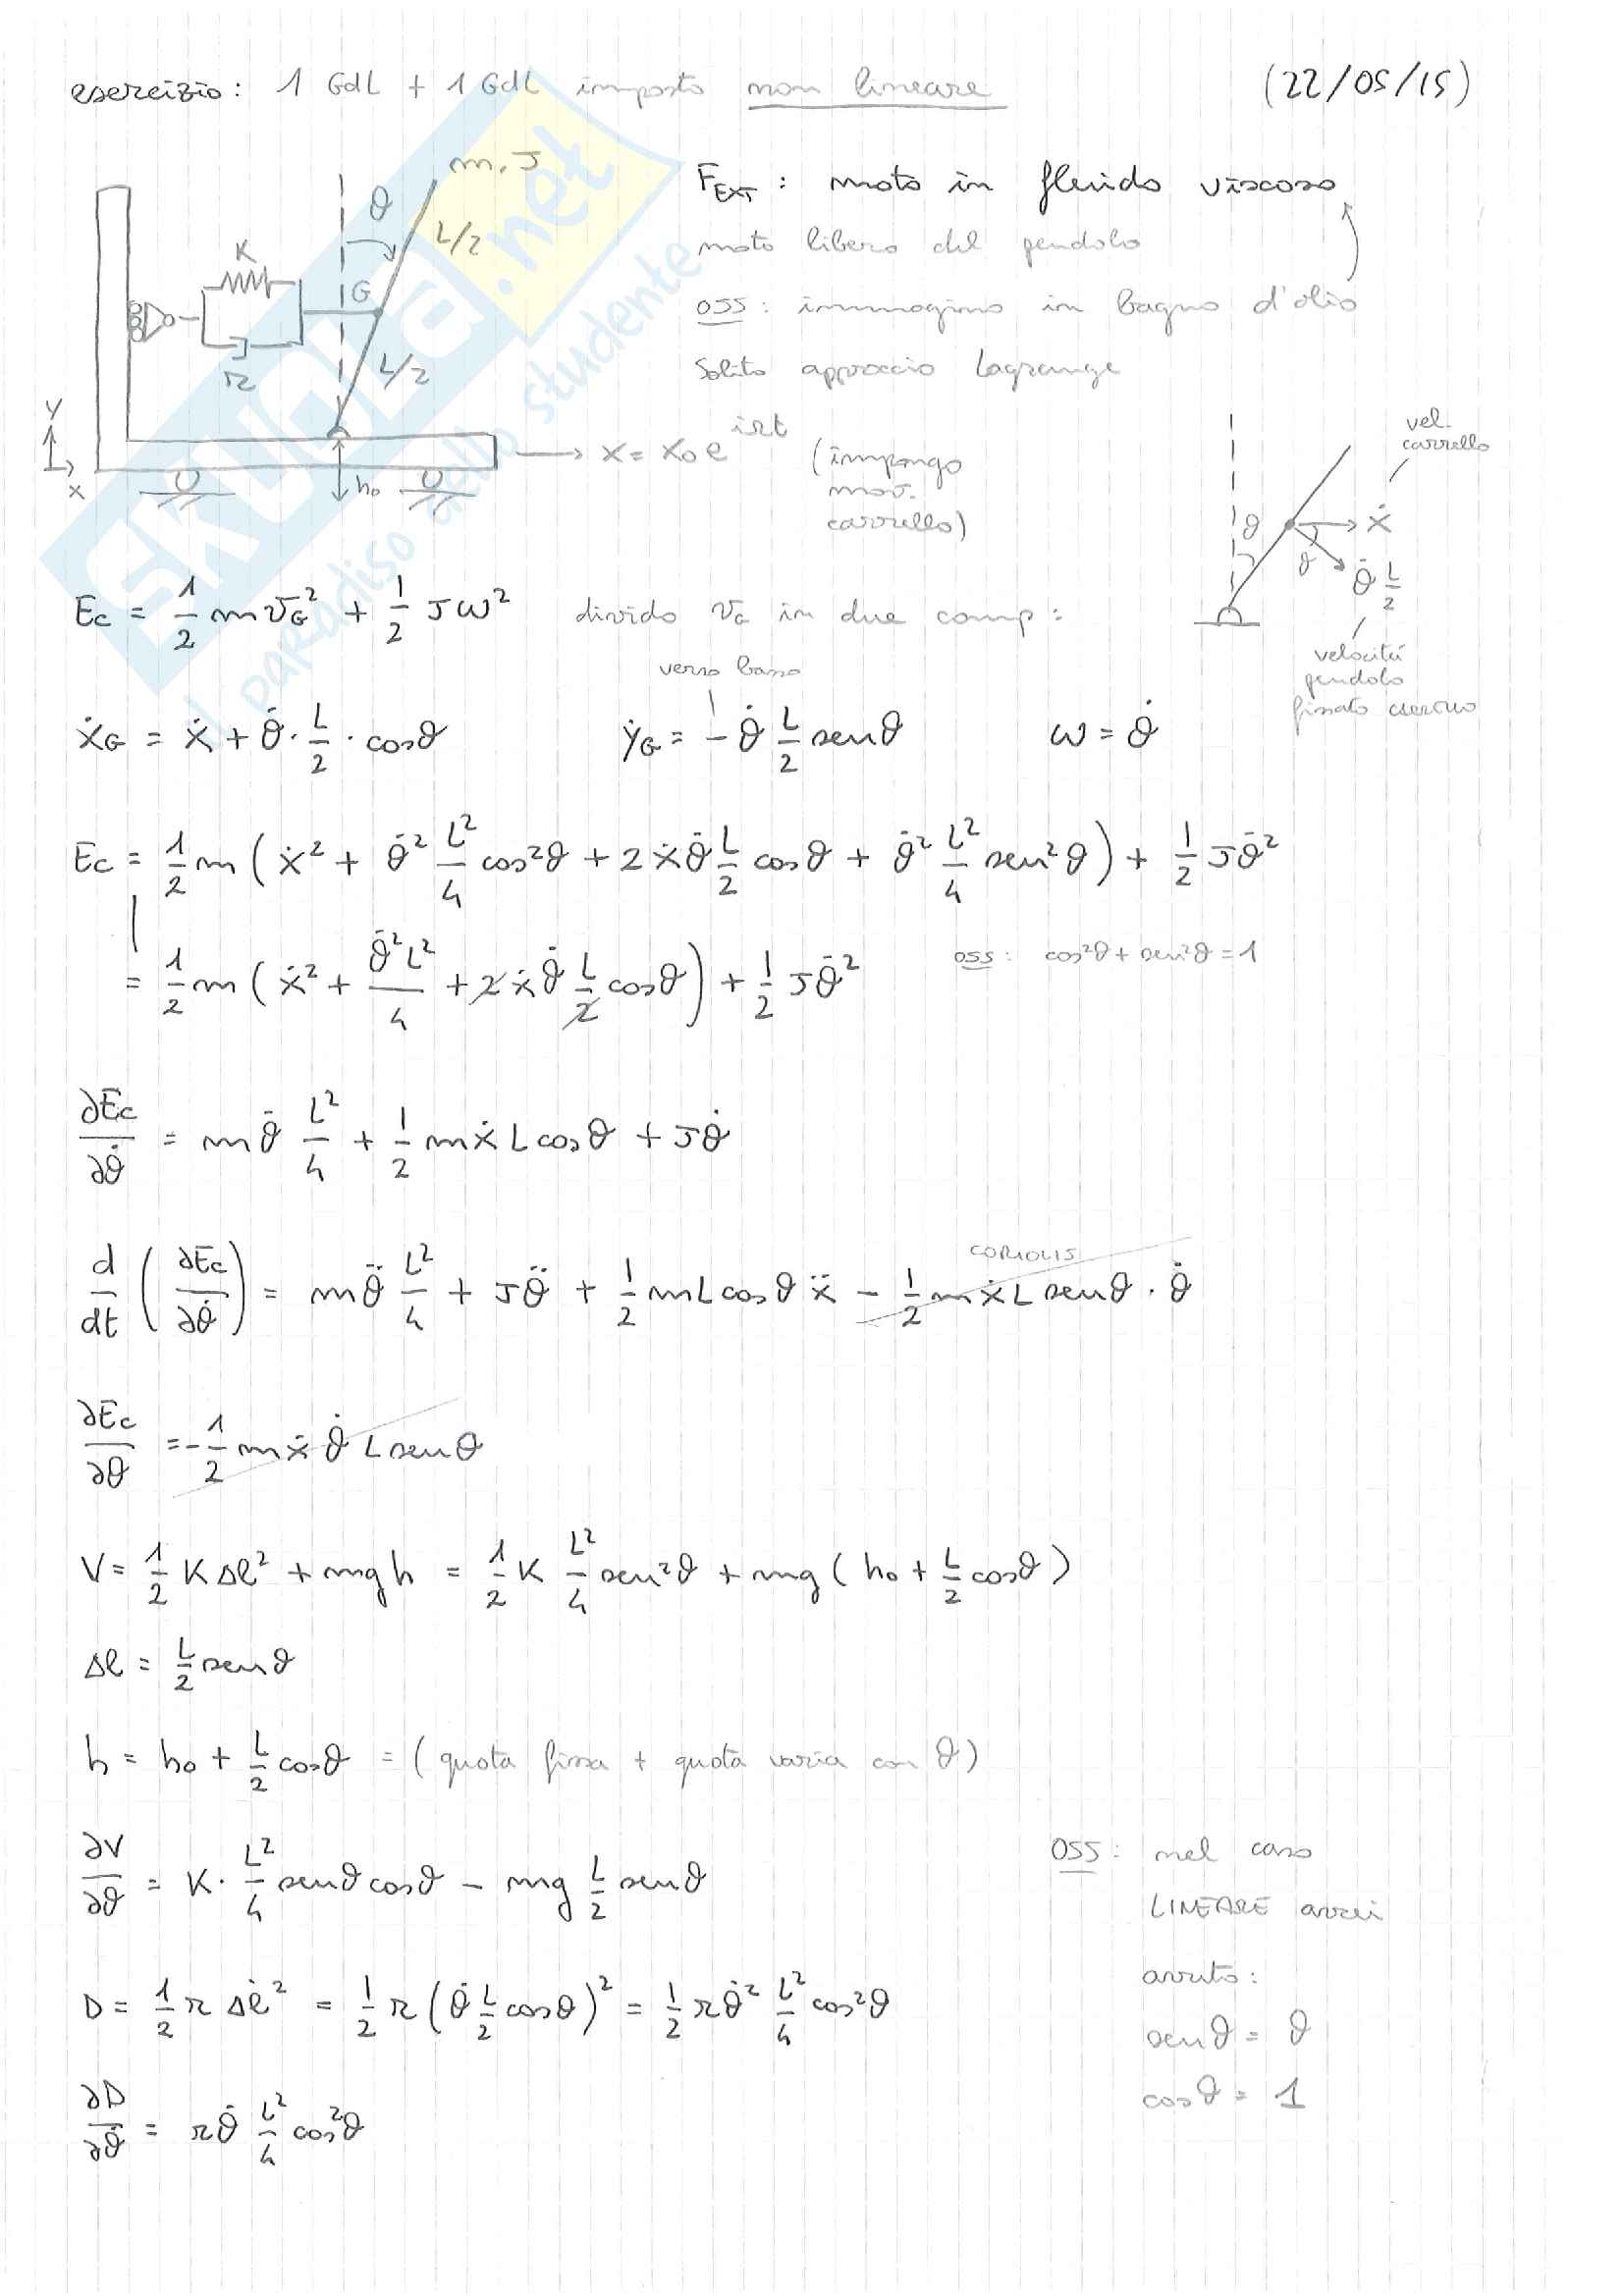 esercizio: 1 GdL + 1 GdL imposto non lineare (22/05/15)
m, J
θ
L/2
K
G
r
L/2
Y
x
h₀
→ x = x₀ e^{iΩt} (impongo
mov.
carrello)
F_EXT : moto in fluido viscoso
moto libero del pendolo
OSS: immagino in bagno d'olio
Solito approccio Lagrange
vel.
carrello
θ
ẋ
θ
θ̇ L/2
velocità
pendolo
fissato
Ec = 1/2 m v_G² + 1/2 J ω² divido v_G in due comp:
verso basso
ẋ_G = ẋ + θ̇ · L/2 · cosθ ẏ_G = - θ̇ L/2 senθ ω = θ̇
Ec = 1/2 m ( ẋ² + θ̇² L²/4 cos²θ + 2 ẋ θ̇ L/2 cosθ + θ̇² L²/4 sen²θ ) + 1/2 J θ̇²
= 1/2 m ( ẋ² + θ̇² L²/4 + 2 ẋ θ̇ L/2 cosθ ) + 1/2 J θ̇² OSS: cos²θ + sen²θ = 1
∂Ec/∂θ̇ = m θ̇ L²/4 + 1/2 m ẋ L cosθ + J θ̇
CORIOLIS
d/dt ( ∂Ec/∂θ̇ ) = m θ̈ L²/4 + J θ̈ + 1/2 m L cosθ ẍ - 1/2 m ẋ L senθ · θ̇
∂Ec/∂θ = - 1/2 m ẋ θ̇ L senθ
V = 1/2 K Δl² + mgh = 1/2 K L²/4 sen²θ + mg ( h₀ + L/2 cosθ )
Δl = L/2 senθ
h = h₀ + L/2 cosθ = ( quota fissa + quota varia con θ )
∂V/∂θ = K · L²/4 senθ cosθ - mg L/2 senθ
D = 1/2 r Δl̇² = 1/2 r ( θ̇ L/2 cosθ )² = 1/2 r θ̇² L²/4 cos²θ
∂D/∂θ̇ = r θ̇ L²/4 cos²θ
OSS: nel caso
LINEARE avrei
avuto:
senθ = θ
cosθ = 1
skuola.net
il paradiso dello studente